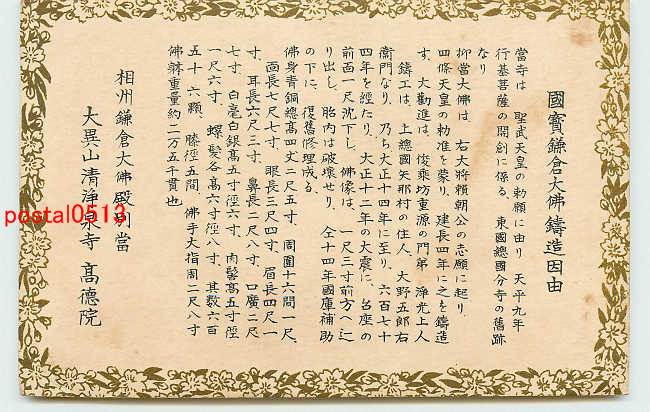 國寶鎌倉大佛鑄造因由
當寺は 聖武天皇の勅願に由り 天平九年
行基菩薩の開創に係る、東國總國分寺の舊跡
なり
抑當大佛は、右大將賴朝公の志願に起り、
四條天皇の勅准を蒙り、建長四年に之を鑄造
す、大勸進は、俊乘坊重源の門弟 淨光上人
鑄工は、上總國矢那村の住人、大野五郎右
衞門なり、乃ち大正十四年に至り、六百七十
四年を經たり、大正十二年の大震に、台座の
前面一尺沈下し、佛像は、一尺三寸前方へ辷
り出し、胎内は破壞せり、仝十四年國庫補助
の下に、復舊修理成る、
佛身青銅總髙四丈二尺五寸、周圍十六間一尺、
面長七尺七寸、眼長三尺四寸、眉長四尺一
寸、耳長六尺三寸、鼻長二尺八寸、口廣二尺
七寸、白毫白銀髙五寸徑六寸、肉髻髙五寸徑
一尺六寸、螺髮各高六寸徑八寸、其数六百
五十六顆、膝徑五間、佛手大指周二尺八寸
佛躰重量約二万五千貫也
相州鎌倉大佛殿別當
大異山清淨泉寺 髙德院
postal0513